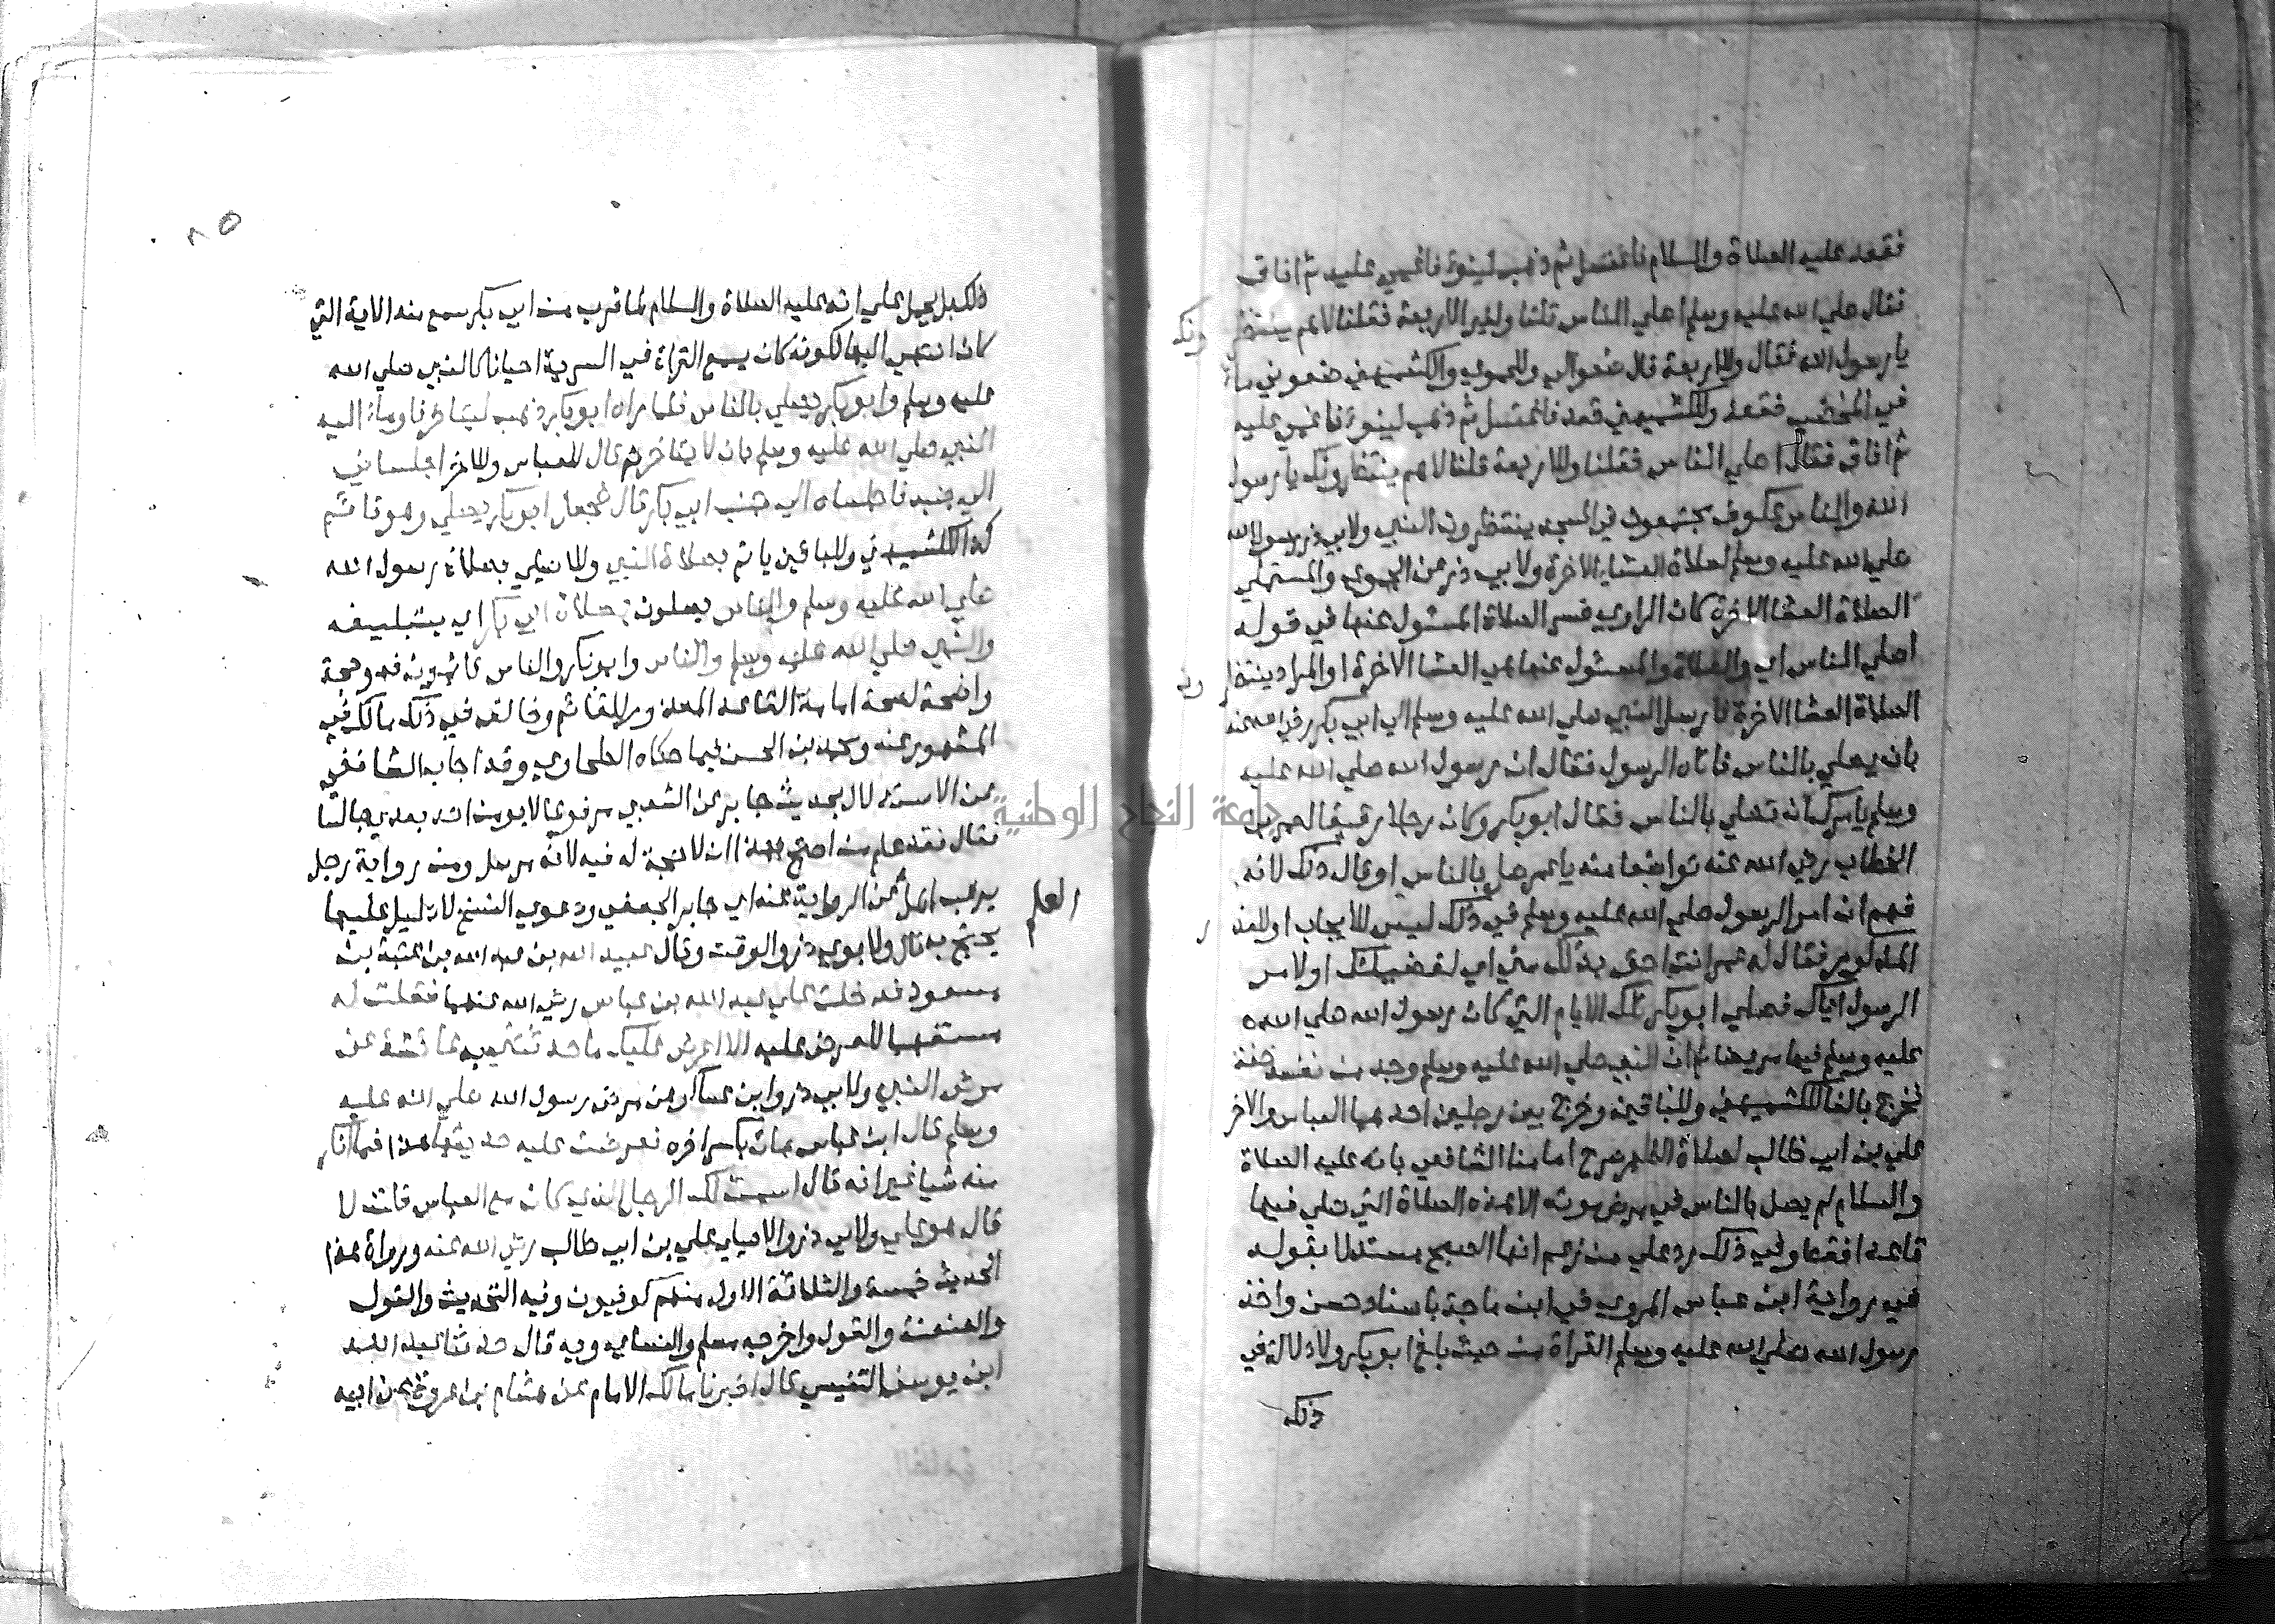 فقعد عليه الصلاة والسلام فاغتسل ثم ذهب لينوء فاغمي عليه ثم افاق
فقال صلي الله عليه وسلم اصلي الناس قلنا ولغير الاربعة فقلنا لا هم ينتظرونك
يا رسول الله فقال وللاربعة قال ضعوا لي وللحموي والكشميهني ضعوني ماء
في المخضب فقعد وللكشميهني قعد فاغتسل ثم ذهب لينوء فاغمي عليه
ثم افاق فقال اصلي الناس فقلنا وللاربعة قلنا لا هم ينتظرونك يا رسول
الله والناس عكوف مجتمعون في المسجد ينتظرون النبي ولابي ذر رسول الله
صلي الله عليه وسلم لصلاة العشاء الاخرة ولابي ذر عن الحموي والمستملي
الصلاة العشا الاخرة كان الراوي فسر الصلاة المسئول عنها في قوله
اصلي الناس اي والصلاة والمسئول عنها هي العشا الاخرة او المراد ينتظرون
الصلاة العشا الاخرة فارسل النبي صلي الله عليه وسلم الي ابي بكر رضي الله عنه
بان يصلي بالناس فاتاه الرسول فقال ان رسول الله صلي الله عليه
وسلم يامرك ان تصلي بالناس فقال ابو بكر وكان رجلا رقيقا لعمر بن
الخطاب رضي الله عنه تواضعا منه يا عمر صل بالناس او قال ذلك لانه
فهم ان امر الرسول صلي الله عليه وسلم في ذلك ليس للايجاب او للعذر
المذكور فقال له عمر انت احق بذلك مني اي لفضيلتك او لامر
الرسول اياك فصلي ابو بكر تلك الايام التي كان رسول الله صلي الله
عليه وسلم فيها مريضا ثم ان النبي صلي الله عليه وسلم وجد من نفسه خفة
فخرج بالفا للكشميهني وللباقين وخرج بين رجلين احدهما العباس والاخر
علي بن ابي طالب لصلاة الظهر صرح امامنا الشافعي بانه عليه الصلاة
والسلام لم يصل بالناس في مرض موته الا هذه الصلاة التي صلي فيها
قاعدا فقط وفي ذلك رد علي من زعم انها الصبح مستدلا بقوله
في رواية ابن عباس المروي في ابن ماجة باسناد حسن واخذ
رسول الله صلي الله عليه وسلم القراة من حيث بلغ ابو بكر ولا دلالة في
ذلك
٨٥
ذلك بل يحمل علي انه عليه الصلاة والسلام لما قرب من ابي بكر سمع منه الاية التي
كان انتهي اليها لكونه كان يسمع القراة في السرية احيانا كالنبي صلي الله
عليه وسلم وابو بكر يصلي بالناس فلما راه ابو بكر ذهب ليتاخر فاوماء اليه
النبي صلي الله عليه وسلم بان لا يتاخر ثم قال للعباس وللاخر اجلساني
الي جنبه فاجلساه الي جنب ابي بكر قال فجعل ابو بكر يصلي وهو قائم
كذا للكشميهني وللباقين ياتم بصلاة النبي وللاصيلي بصلاة رسول الله
صلي الله عليه وسلم والناس يصلون بصلاة ابي بكر اي بتبليغه
والنبي صلي الله عليه وسلم والناس وابو بكر والناس قائمون فهو حجة
واضحة لصحة امامة القاعد المعذور للقائم وخالف في ذلك مالك في
المشهور عنه ومحمد بن الحسن فيما حكاه الطحاوي وقد اجاب الشافعي
عن الاستدلال بحديث جابر عن الشعبي مرفوعا لا يومن احد بعدي جالسا
فقال فقد علم من احتج بهذا ان لا حجة له فيه لانه مرسل ومن رواية رجل
يرغب اهل العلم عن الرواية عنه اي جابر الجعفي ودعوي النسخ لا دليل عليها
يحتج به قال ولابوي ذر والوقت وقال عبيد الله بن عبد الله بن عتبة بن
مسعود فدخلت علي عبد الله بن عباس رضي الله عنهما فقلت له
مستفهما للعرض عليه الا اعرض عليك ما حدثتني به عائشة عن
مرض النبي ولابي ذر وابن عساكر عن مرض رسول الله صلي الله عليه
وسلم قال ابن عباس هات بكسر اخره فعرضت عليه حديثها هذا فما انكر
منه شيا غير انه قال اسمت لك الرجل الذي كان مع العباس قلت لا
قال هو علي ولابي ذر والاصيلي علي بن ابي طالب رضي الله عنه ورواة هذا
الحديث خمسة والثلاثة الاول منهم كوفيون وفيه التحديث والقول
والعنعنة والقول واخرجه مسلم والنسائي وبه قال حدثنا عبد الله
ابن يوسف التنيسي قال اخبرنا مالك الامام عن هشام بن عروة عن ابيه
جامعة النجاح الوطنية